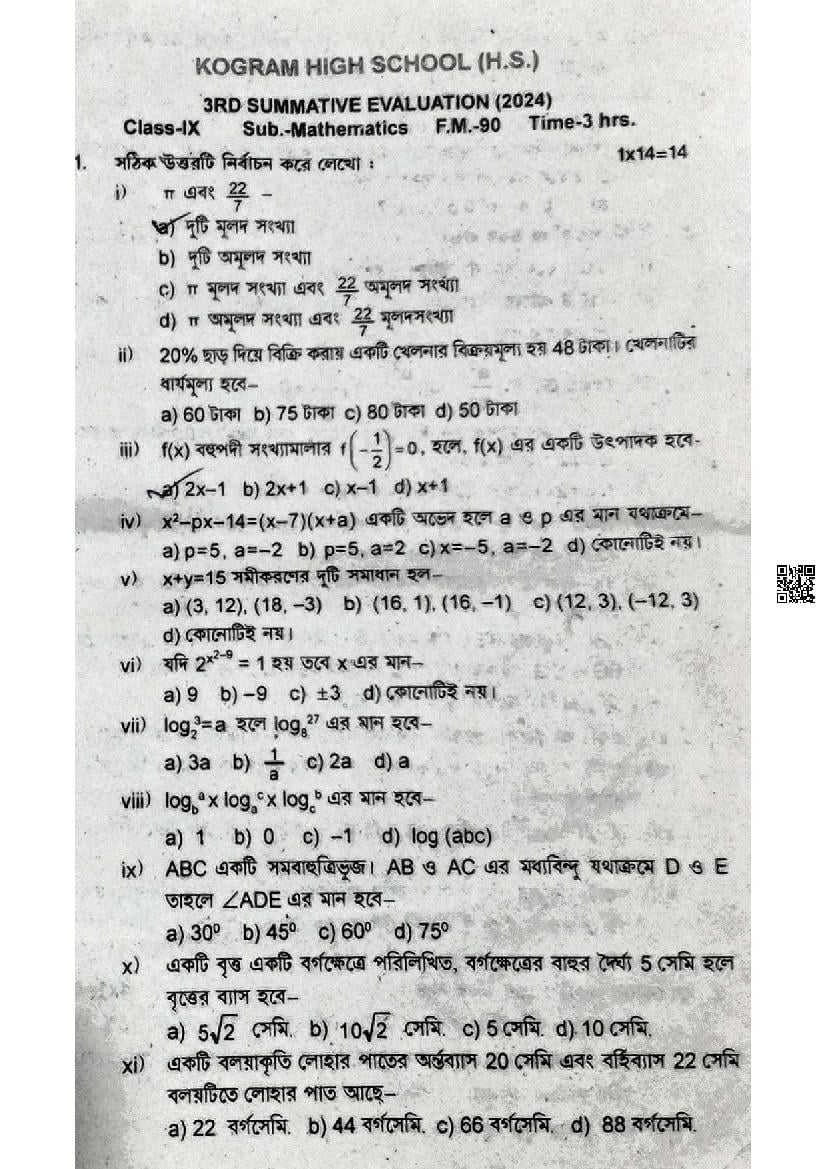 KOGRAM HIGH SCHOOL (H.S.)
3RD SUMMATIVE EVALUATION (2024)
Class-IX Sub.-Mathematics F.M.-90 Time-3 hrs.
1. সঠিক উত্তরটি নির্বাচন করে লেখো : 1x14=14
i) π এবং 22/7 –
a) দুটি মূলদ সংখ্যা
b) দুটি অমূলদ সংখ্যা
c) π মূলদ সংখ্যা এবং 22/7 অমূলদ সংখ্যা
d) π অমূলদ সংখ্যা এবং 22/7 মূলদসংখ্যা
ii) 20% ছাড় দিয়ে বিক্রি করায় একটি খেলনার বিক্রয়মূল্য হয় 48 টাকা। খেলনাটির
ধার্যমূল্য হবে–
a) 60 টাকা b) 75 টাকা c) 80 টাকা d) 50 টাকা
iii) f(x) বহুপদী সংখ্যামালার f(–1/2)=0, হলে, f(x) এর একটি উৎপাদক হবে-
a) 2x–1 b) 2x+1 c) x–1 d) x+1
iv) x²–px–14=(x–7)(x+a) একটি অভেদ হলে a ও p এর মান যথাক্রমে–
a) p=5, a=–2 b) p=5, a=2 c) x=–5, a=–2 d) কোনোটিই নয়।
v) x+y=15 সমীকরণের দুটি সমাধান হল–
a) (3, 12), (18, –3) b) (16, 1), (16, –1) c) (12, 3), (–12, 3)
d) কোনোটিই নয়।
vi) যদি 2^(x²–9) = 1 হয় তবে x এর মান–
a) 9 b) –9 c) ±3 d) কোনোটিই নয়।
vii) log₂³=a হলে log₈²⁷ এর মান হবে–
a) 3a b) 1/a c) 2a d) a
viii) log_b^a x log_a^c x log_c^b এর মান হবে–
a) 1 b) 0 c) –1 d) log (abc)
ix) ABC একটি সমবাহুত্রিভূজ। AB ও AC এর মধ্যবিন্দু যথাক্রমে D ও E
তাহলে ∠ADE এর মান হবে–
a) 30⁰ b) 45⁰ c) 60⁰ d) 75⁰
x) একটি বৃত্ত একটি বর্গক্ষেত্রে পরিলিখিত, বর্গক্ষেত্রের বাহুর দৈর্ঘ্য 5 সেমি হলে
বৃত্তের ব্যাস হবে–
a) 5√2 সেমি. b) 10√2 সেমি. c) 5 সেমি. d) 10 সেমি.
xi) একটি বলয়াকৃতি লোহার পাতের অর্ন্তব্যাস 20 সেমি এবং বর্হিব্যাস 22 সেমি
বলয়টিতে লোহার পাত আছে–
a) 22 বর্গসেমি. b) 44 বর্গসেমি. c) 66 বর্গসেমি. d) 88 বর্গসেমি.